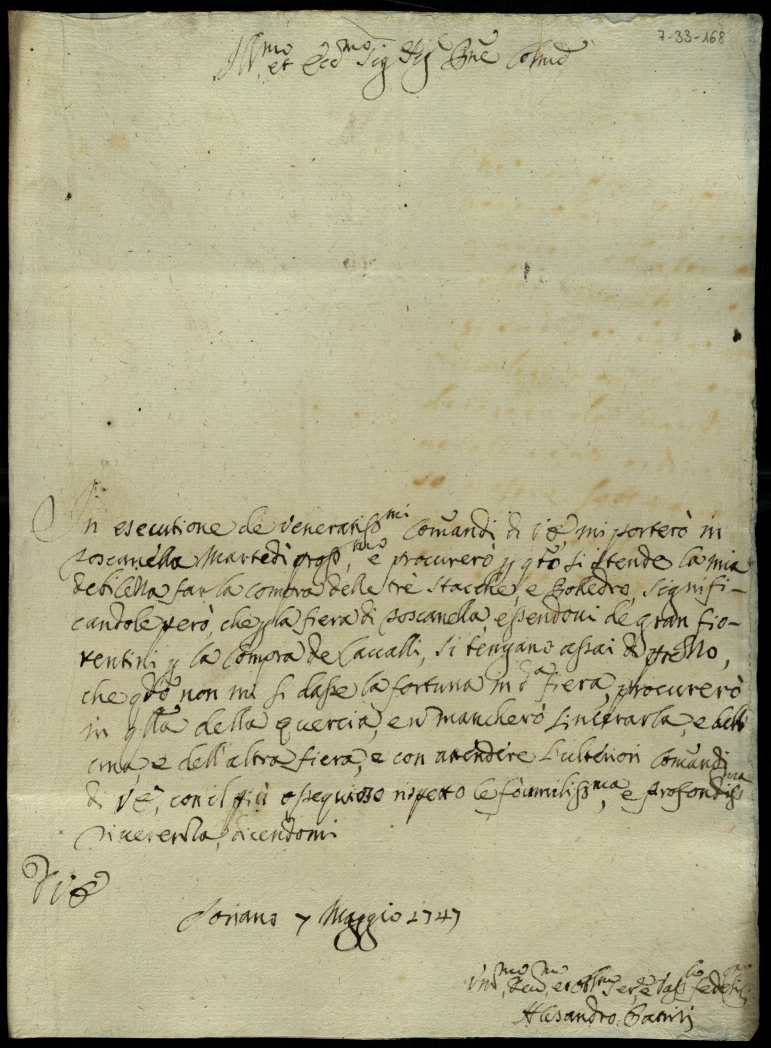 7-33-168
Ill.mo et Ecc.mo Sig Sig Pne Colmo
In esecutione de veneratiss.mi Comandi di V.E. mi porterò in
Toscanella Martedì pross.mo, e procurerò p qto si stende la mia
debolezza far la compra delle trè Stacche, e Poledro, signifi-
candole però, che p la fiera di Toscanella, essendovi de gran fio-
rentini p la compra de Cavalli, si tengano assai di prezzo,
che qdo non mi si dasse la fortuna in d.a fiera, procurerò
in qlla della quercia, e n mancherò
e dell'altra fiera, e con attendere l'ulteriori Comandi
di V.E., con il più ossequioso rispetto le fò umiliss.ma, e profondiss.ma
Riverenza, dicendomi
Di V.E.
Soriano 7 Maggio 1747
Um.mo, Dev.mo, et Obl.mo Ser.e
Alesandro